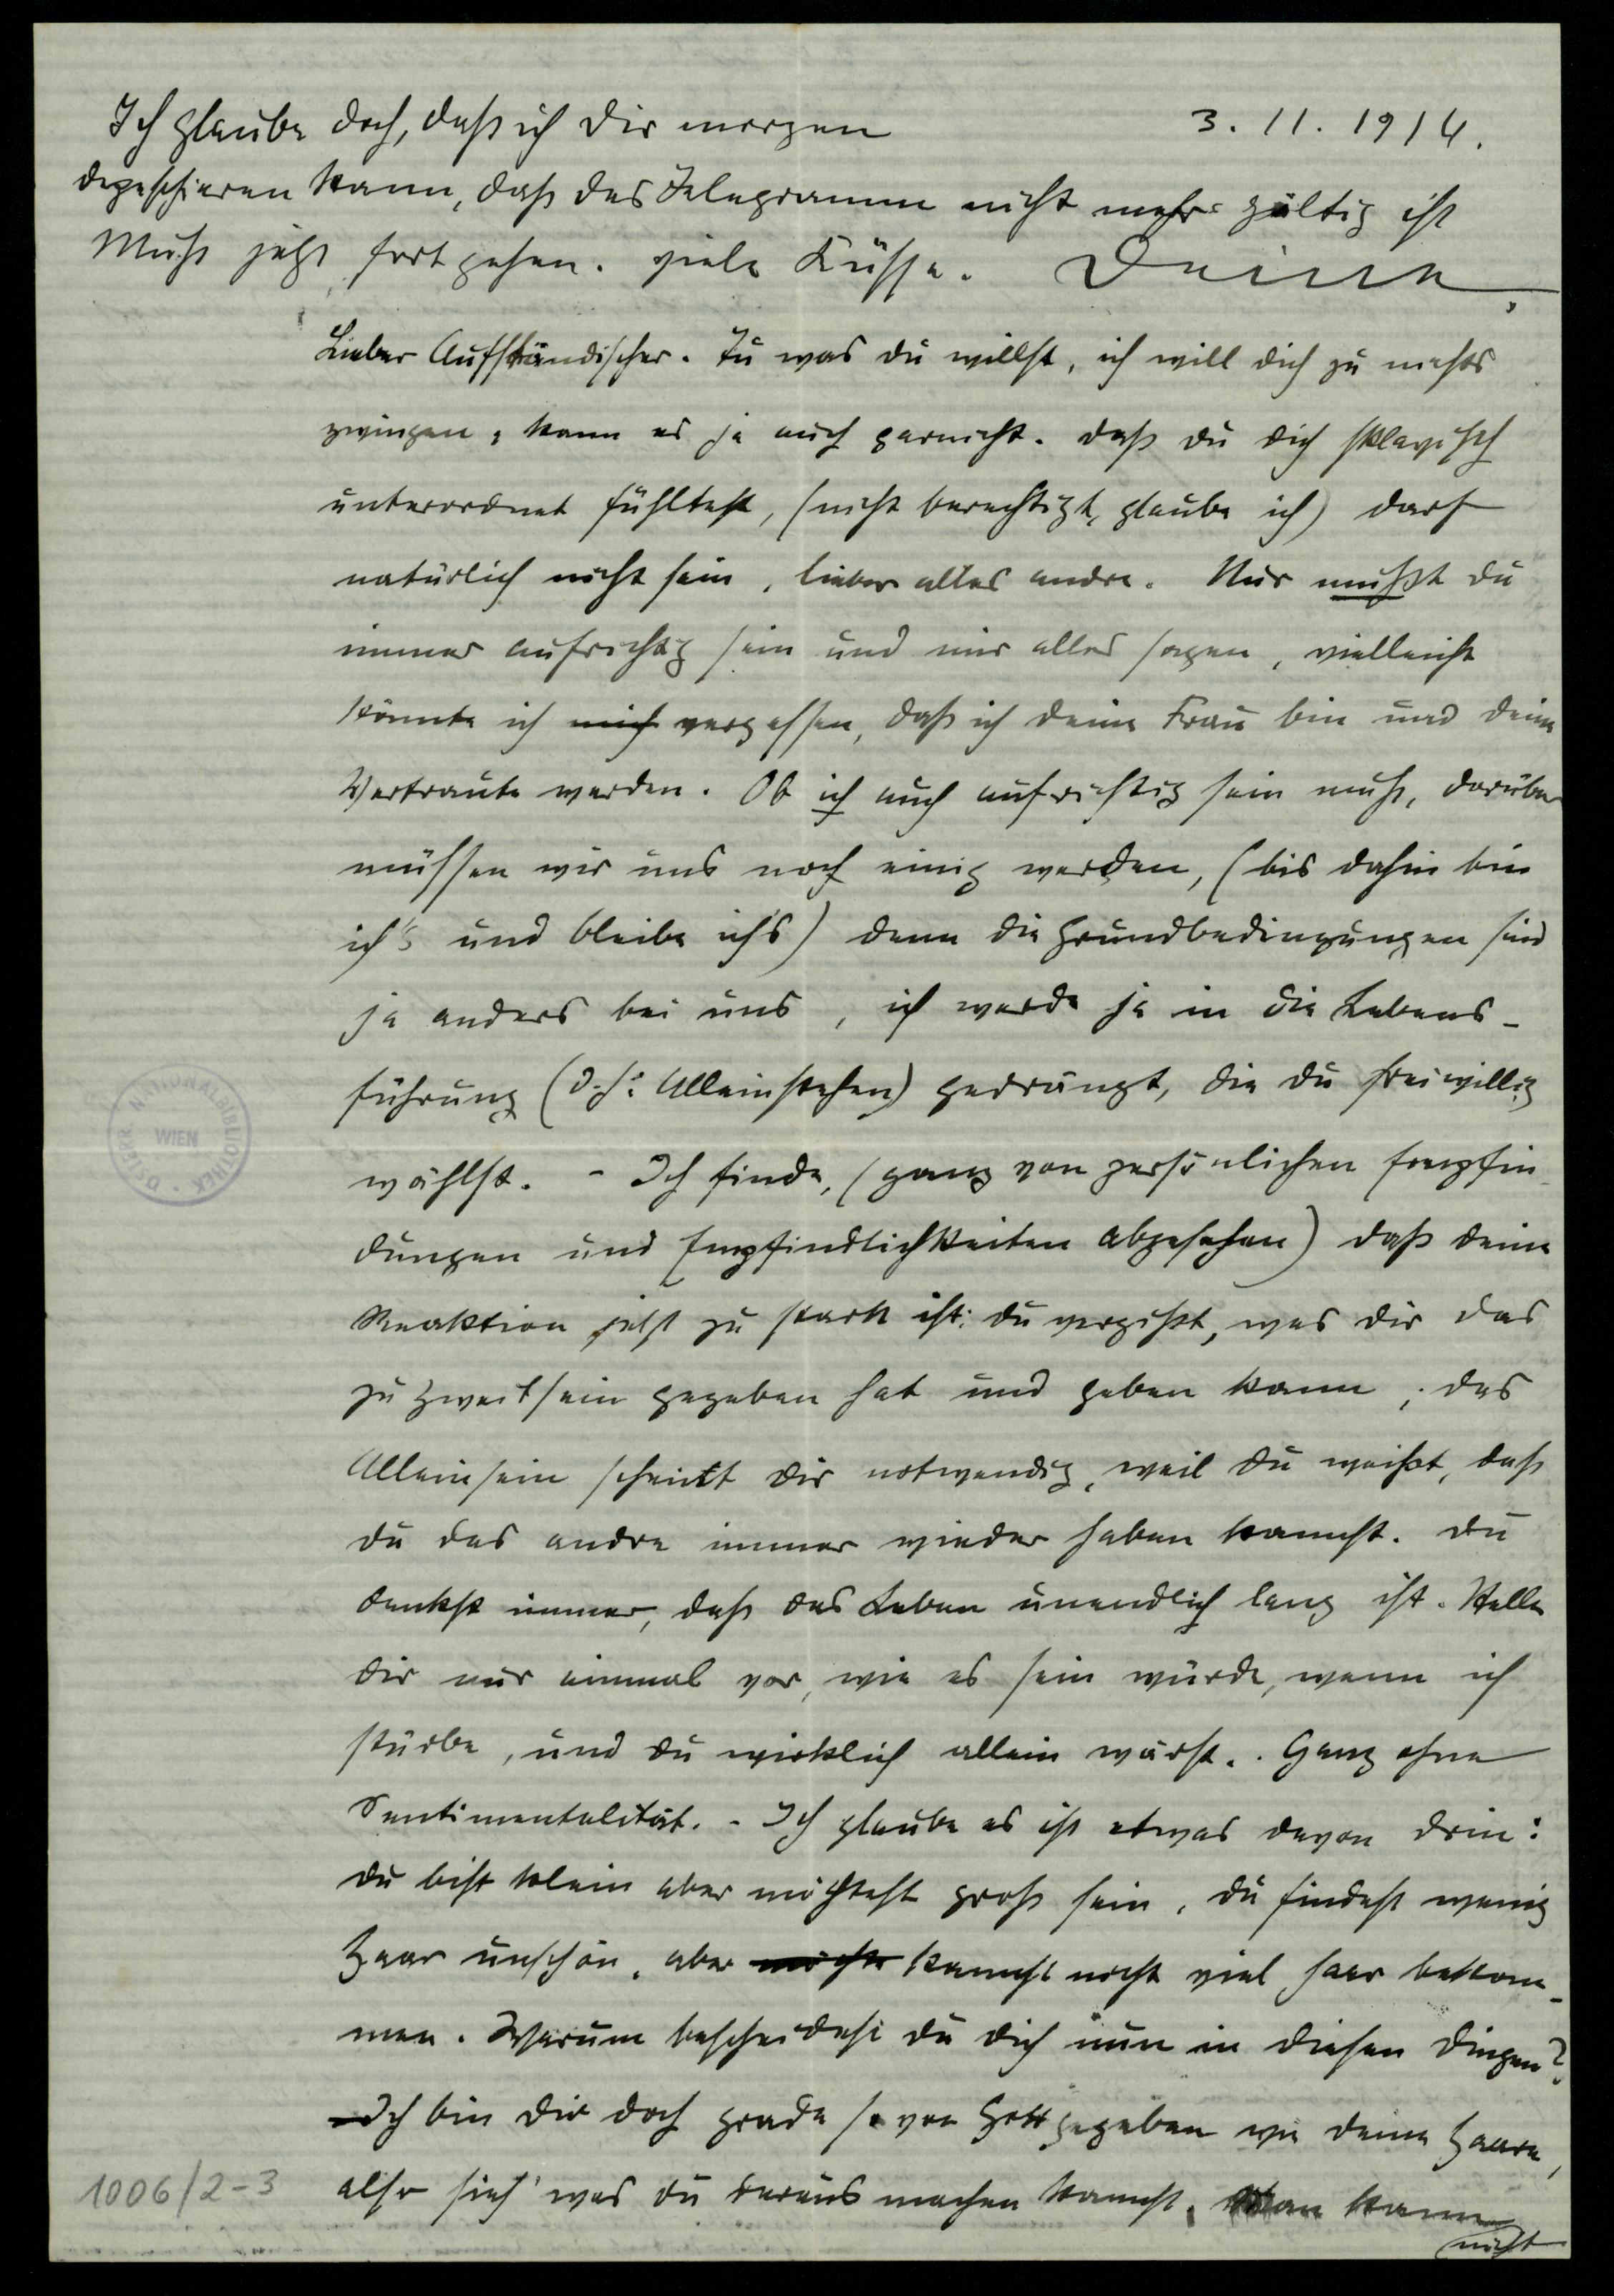 Ich glaube doch, daß ich dir morgen
3. 11. 1914.
depeschieren kann, daß das Telegramm nicht mehr gültig ist
Muß jetzt fort gehen. viele Küsse. Deine
Lieber Aufständischer. Tu was du willst, ich will dich zu nichts
zwingen, kann es ja auch garnicht. daß du dich sklavisch
unterordnet fühltest, (nicht berechtigt, glaube ich) darf
natürlich nicht sein, lieber alles andre. Nur mußt du
immer aufrichtig sein und mir alles sagen, vielleicht
könnte ich mich vergessen, daß ich deine Frau bin und deine
Vertraute werden. Ob ich auch aufrichtig sein muß, darüber
müssen wir uns noch einig werden, (bis dahin bin
ich's und bleibe ich's) denn die Grundbedingungen sind
ja anders bei uns, ich werde ja in die Lebens-
führung (d.h: Alleinstehen) gedrängt, die du freiwillig
wählst. - Ich finde, (ganz von persönlichen Empfin-
dungen und Empfindlichkeiten abgesehen) daß deine
Reaktion jetzt zu stark ist: du vergißt, was dir das
zu zweit sein gegeben hat und geben kann, das
Alleinsein scheint dir notwendig, weil du weißt, daß
du das andre immer wieder haben kannst. du
denkst immer, daß das Leben unendlich lang ist. Stelle
dir nur einmal vor, wie es sein würde, wenn ich
stürbe, und du wirklich allein wärst. Ganz ohne
Sentimentalität. - Ich glaube es ist etwas davon drin:
du bist klein aber möchtest groß sein, du findest wenig
Haar unschön, aber möchte kannst nicht viel Haar bekom-
men. Warum bescheidest du dich nun in diesen Dingen?
Ich bin dir doch grade so von Gott gegeben wie deine Haare,
also sieh' was du daraus machen kannst. Man kann
nicht
ÖSTERR. NATIONALBIBLIOTHEK
WIEN
1006/2-3